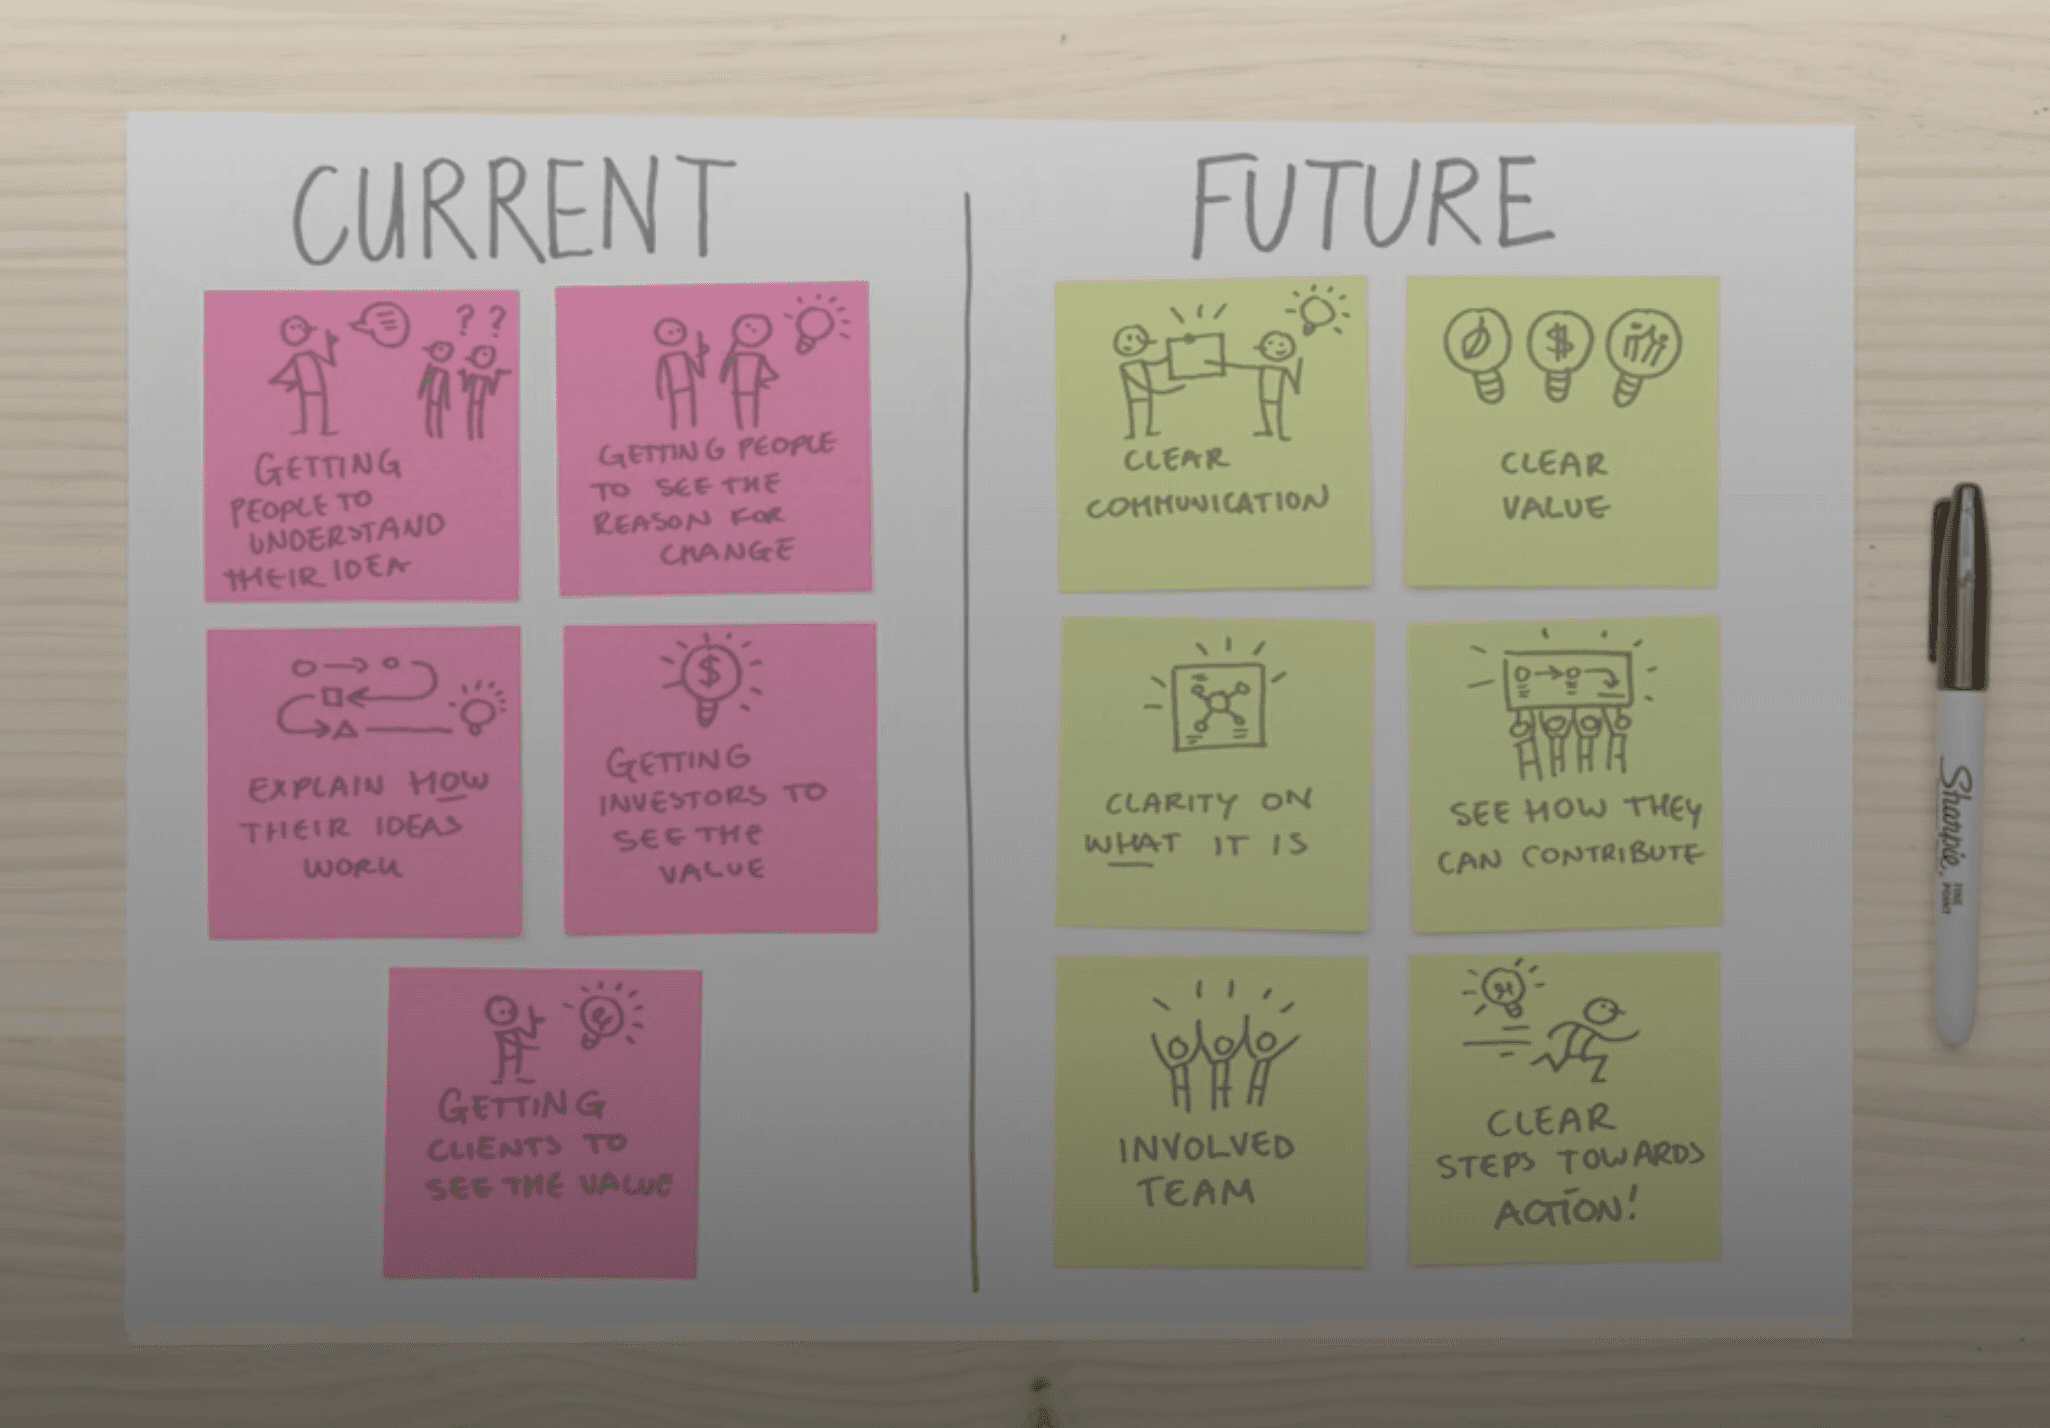 CURRENT
FUTURE
? ?
GETTING
PEOPLE TO
UNDERSTAND
THEIR IDEA
GETTING PEOPLE
TO SEE THE
REASON FOR
CHANGE
EXPLAIN HOW
THEIR IDEAS
WORK
$
GETTING
INVESTORS TO
SEE THE
VALUE
GETTING
CLIENTS TO
SEE THE VALUE
CLEAR
COMMUNICATION
$
CLEAR
VALUE
CLARITY ON
WHAT IT IS
SEE HOW THEY
CAN CONTRIBUTE
INVOLVED
TEAM
CLEAR
STEPS TOWARDS
ACTION!
Sharpie.
FINE
POINT